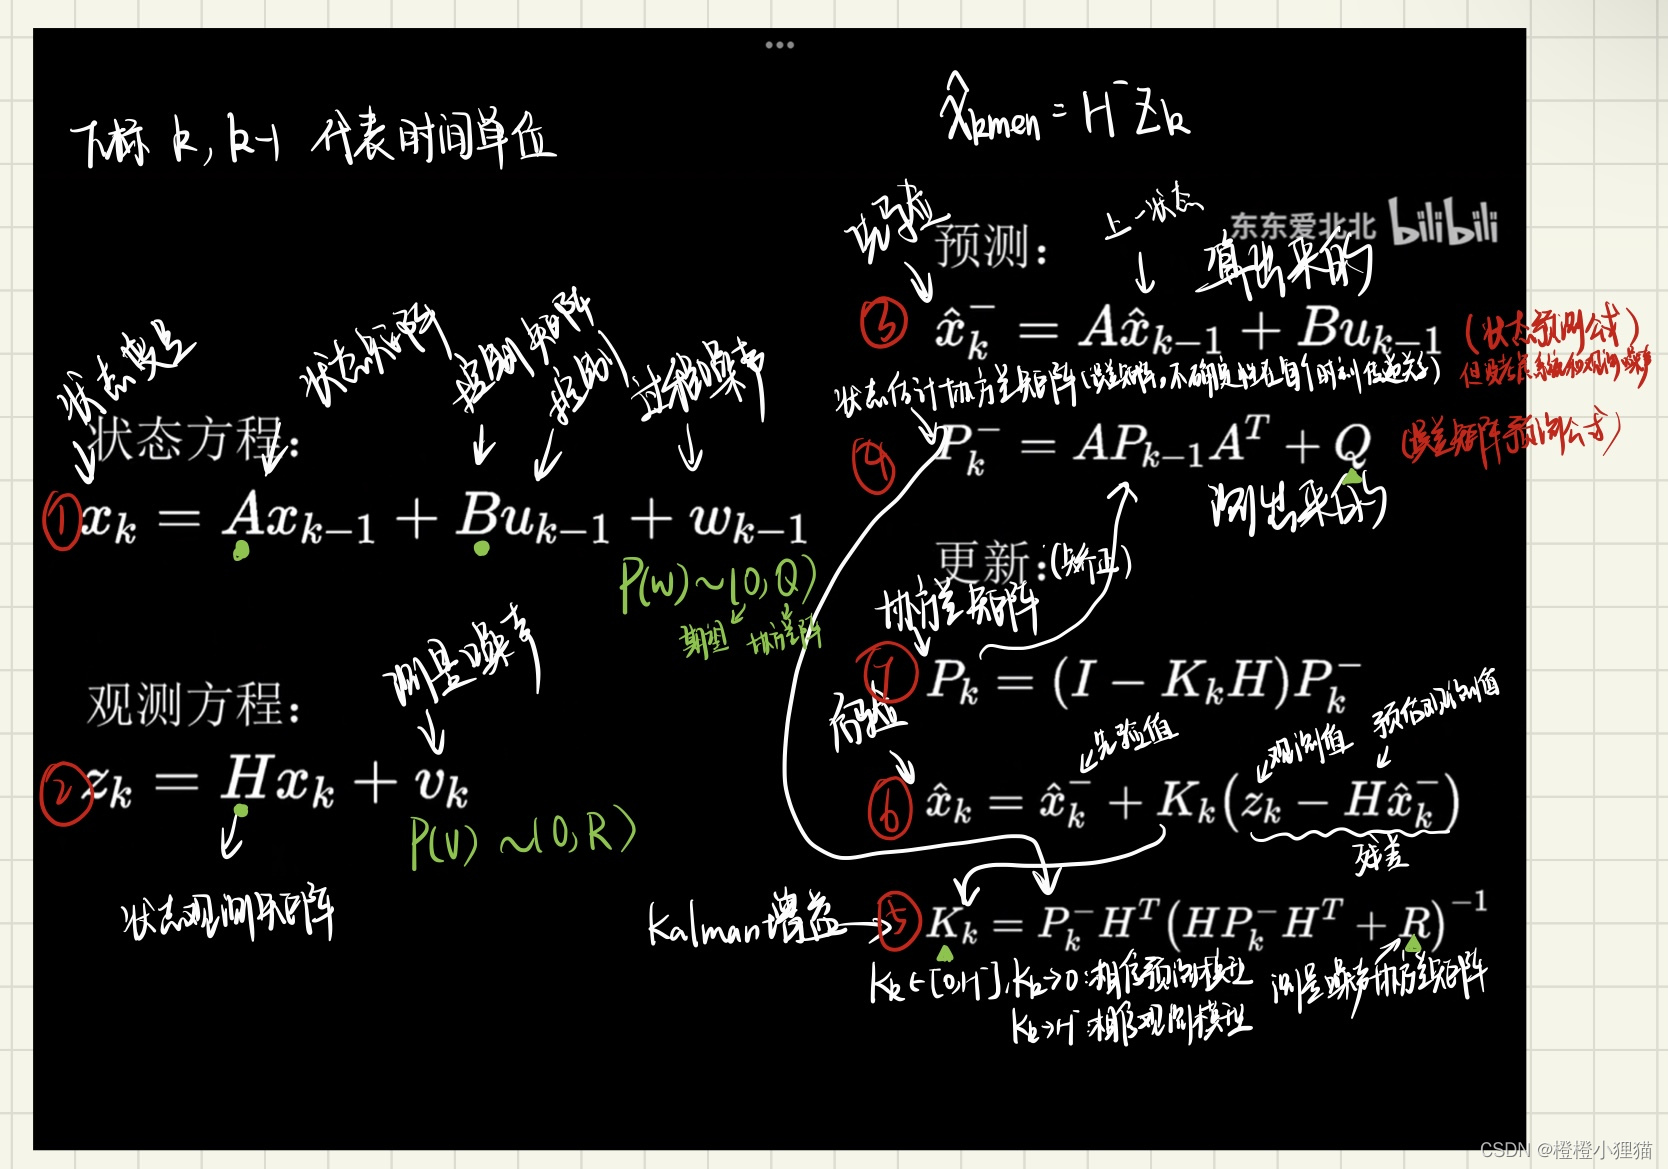 下标 k, k-1 代表时间单位
x̂kmen = H⁻ Zk
状态变量
状态矩阵
控制矩阵
控制
过程噪声
状态方程:
① x_k = Ax_{k-1} + Bu_{k-1} + w_{k-1}
P(w) ~ (0, Q)
期望 协方差阵
测量噪声
观测方程:
② z_k = Hx_k + v_k
P(v) ~ (0, R)
状态观测矩阵
东东爱北北 bilibili
先验
预测:
上一状态
算出来的
③ x̂_k^- = Ax̂_{k-1} + Bu_{k-1} (状态预测公式)
状态估计协方差矩阵(误差矩阵。不确定性在各个时刻传递关系)
④ P_k^- = AP_{k-1}A^T + Q (误差矩阵预测公式)
测出来的
更新: (矫正)
协方差矩阵
⑦ P_k = (I − K_kH)P_k^-
后验
先验值
观测值
预估观测值
⑥ x̂_k = x̂_k^- + K_k(z_k − Hx̂_k^-)
残差
Kalman 增益→ ⑤ K_k = P_k^-H^T(HP_k^-H^T + R)^{-1}
Kk∈[0,H⁻], Kk→0:相信预测模型
Kk→H⁻:相信观测模型
测量噪声协方差矩阵
CSDN @橙橙小狸猫